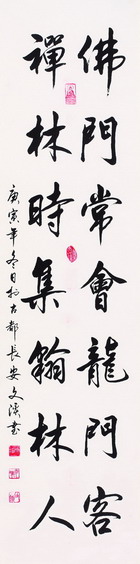 佛門常會龍門客
禪林時集翰林人
庚寅年冬日於古都長安文濱書